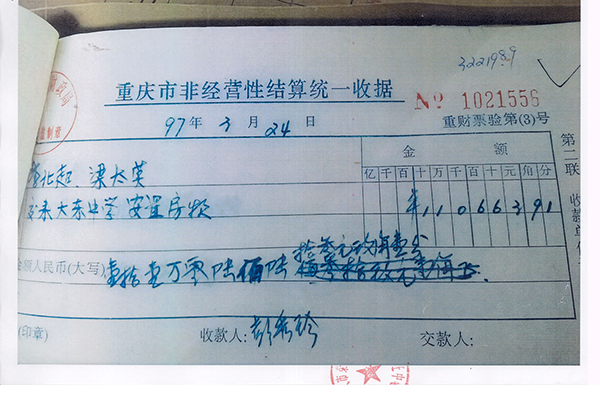 322198.9
重庆市非经营性结算统一收据
№ 1021556
97年3月24日
重财票验第(3)号
金额
亿 千 百 十 万 千 百 十 元 角 分
梁大英
大东中学安置房款
¥ 1 1 0 6 6 3 9 1
金额人民币(大写)
壹拾壹万零陆佰陆
拾叁元玖角壹分
(印章)
收款人:
交款人:
第二联
收款单位